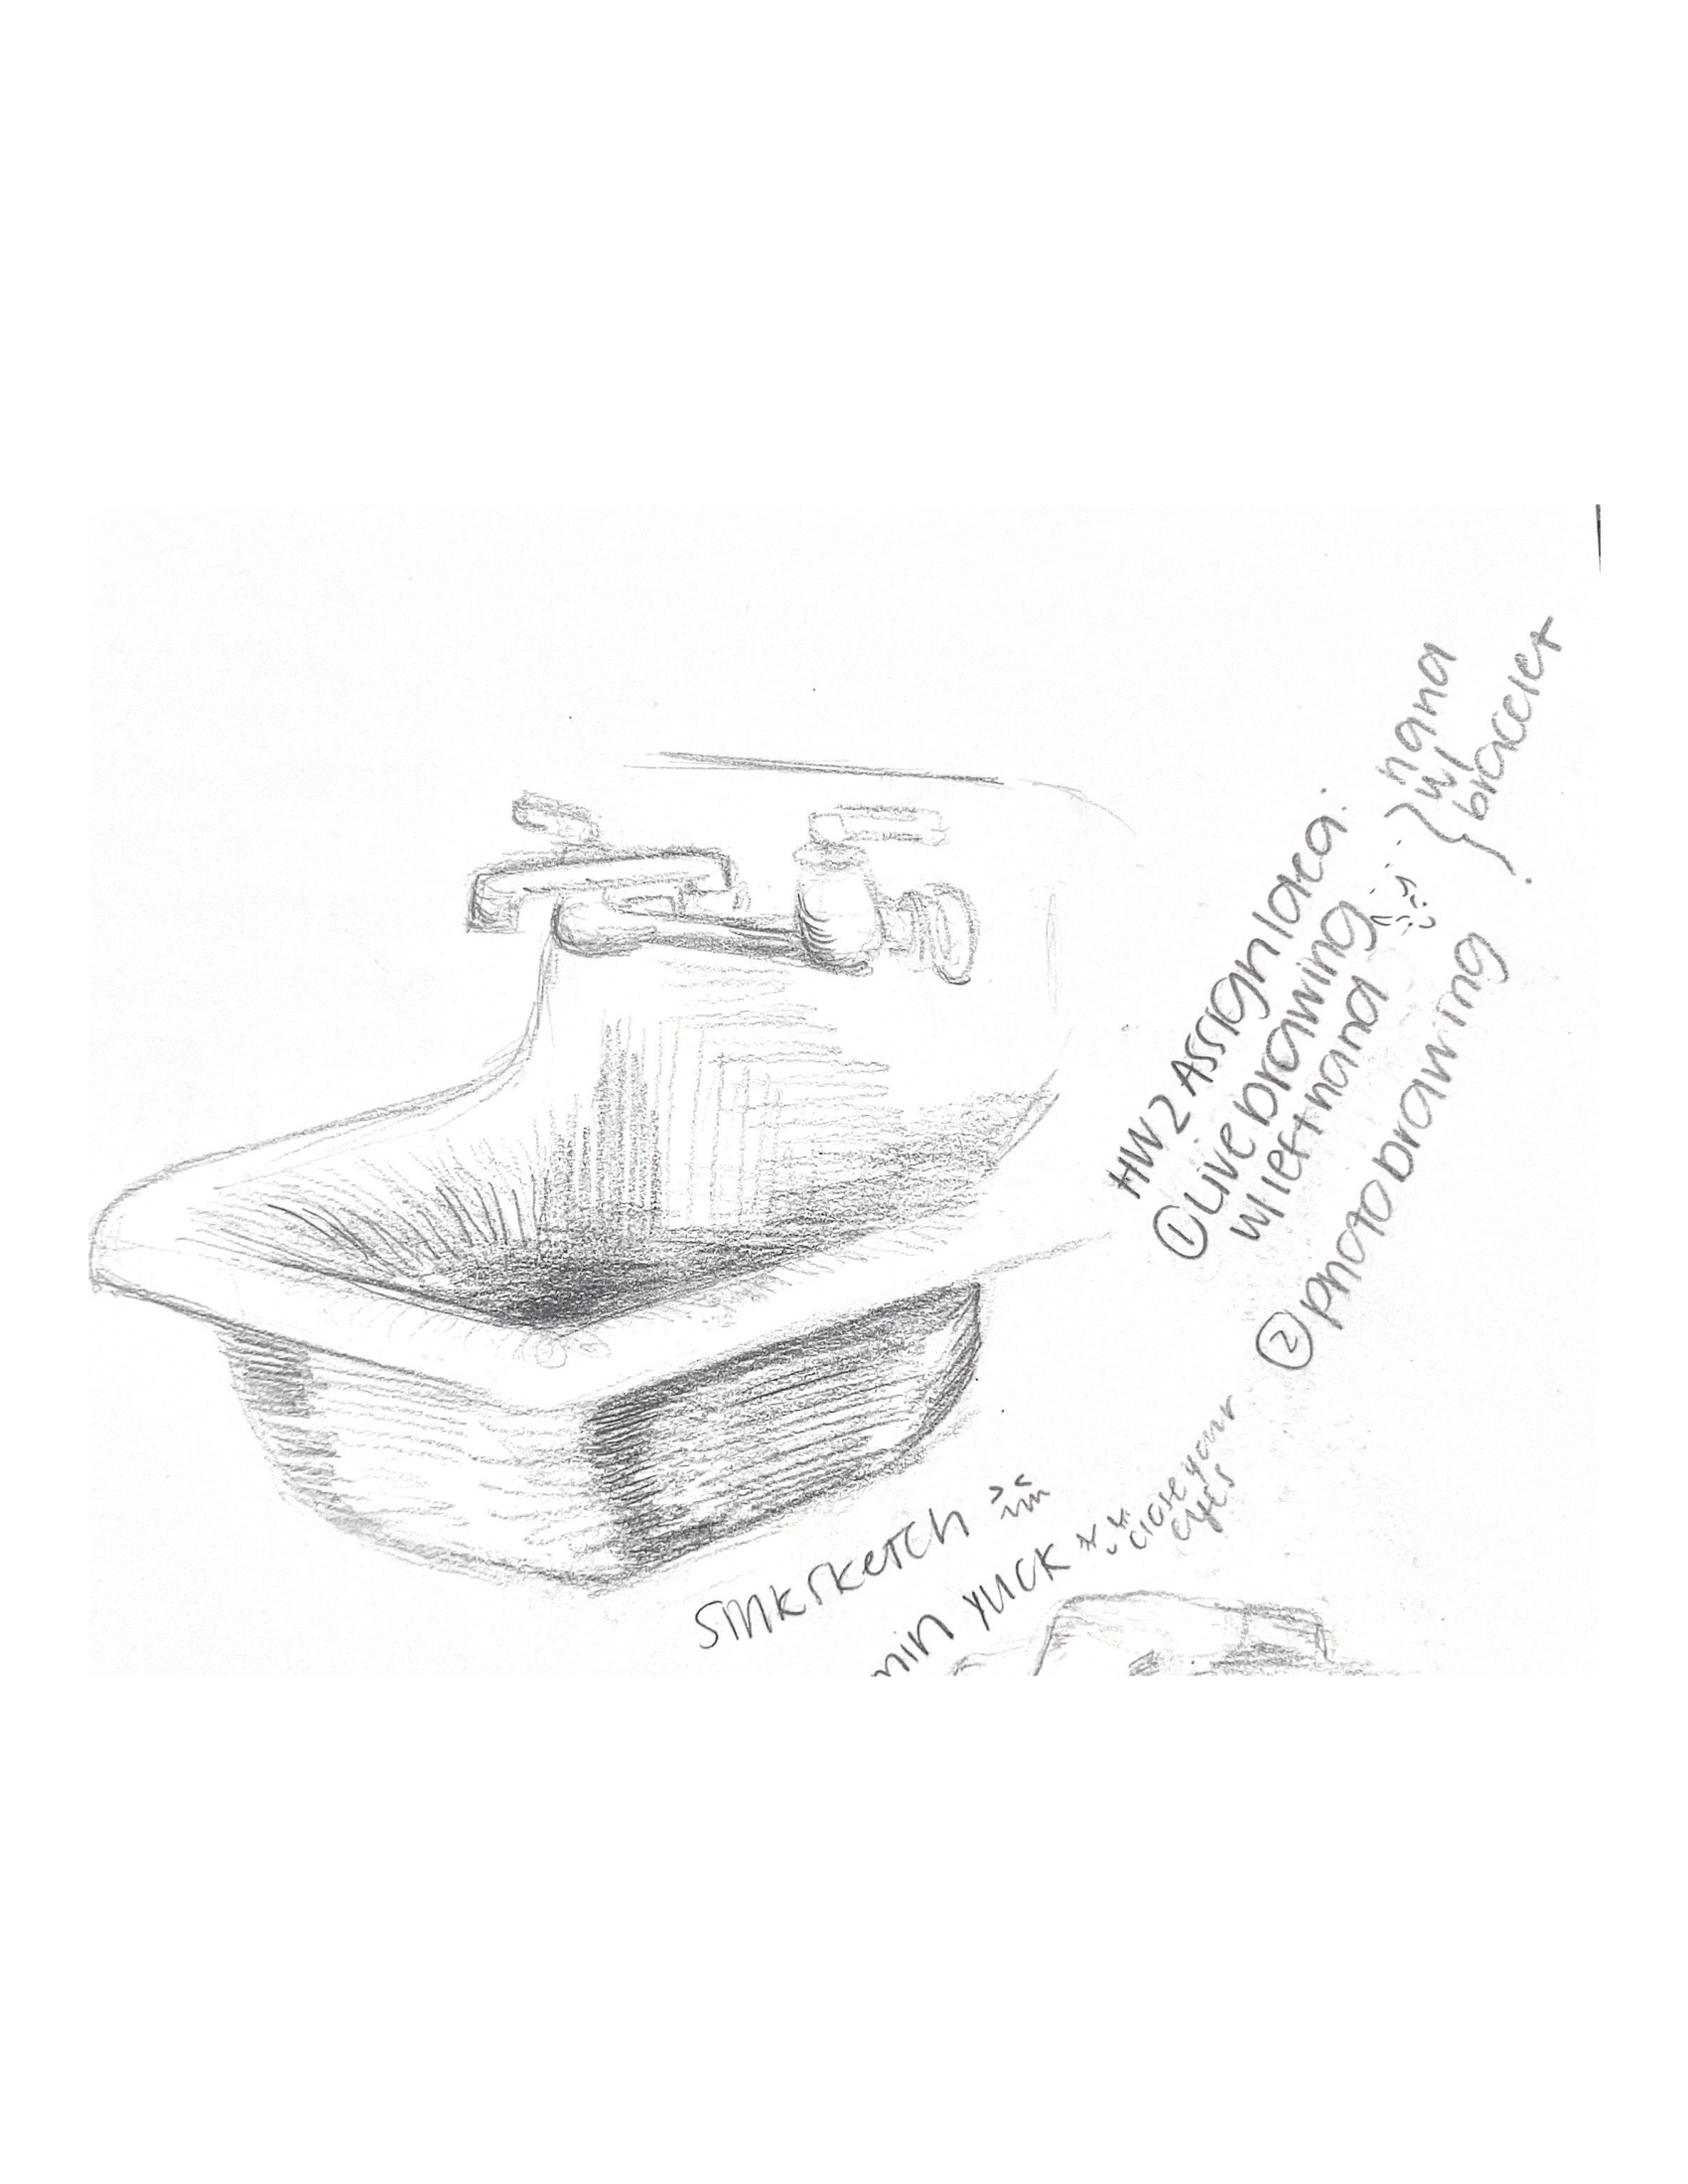 HW 2 Assign Idea:
① Live Drawing
w/ left hand
② photo Drawing
} hand
w/
bracelet
sink sketch
min YUCK
close your
eyes